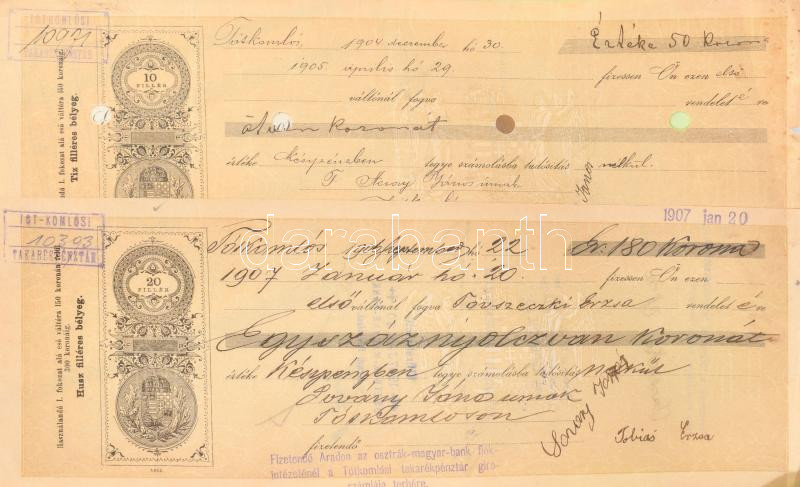 TÓTKOMLÓSI
10971
TAKARÉKPÉNZTÁR
Tótkomlós, 1904 december hó 30.
Értéke 50 korona
1905. április hó 29.
fizessen Ön ezen első
váltónál fogva
rendelet é
ötven koronát
értéke készpénzben tegye számolásba tudósítás nélkül.
T János úrnak
János
10
FILLÉR
Tiz filléres bélyeg.
Használandó I. fokozat alá eső váltóra 150 koronáig.
TÓT-KOMLÓSI
10393
TAKARÉKPÉNZTÁR
1907 jan 20
Tótkomlós 22
Ér. 180 Korona
1907 Január hó 20.
fizessen Ön ezen
első váltónál fogva Erzsa rendelet é
Egyszáznyolczvan koronát
értéke Készpénzben tegye számolásba tudósítás nélkül
Sovány János úrnak
Tótkomlóson
fizetendő
Tóbiás Erzsa
20
FILLÉR
Husz filléres bélyeg.
Használandó I. fokozat alá eső váltóra 150 koronán túl
300 koronáig.
Fizetendő Aradon az osztrák-magyar-bank fiók-
intézeténél a Tótkomlósi takarékpénztár giro-
számlája terhére.
darabanth